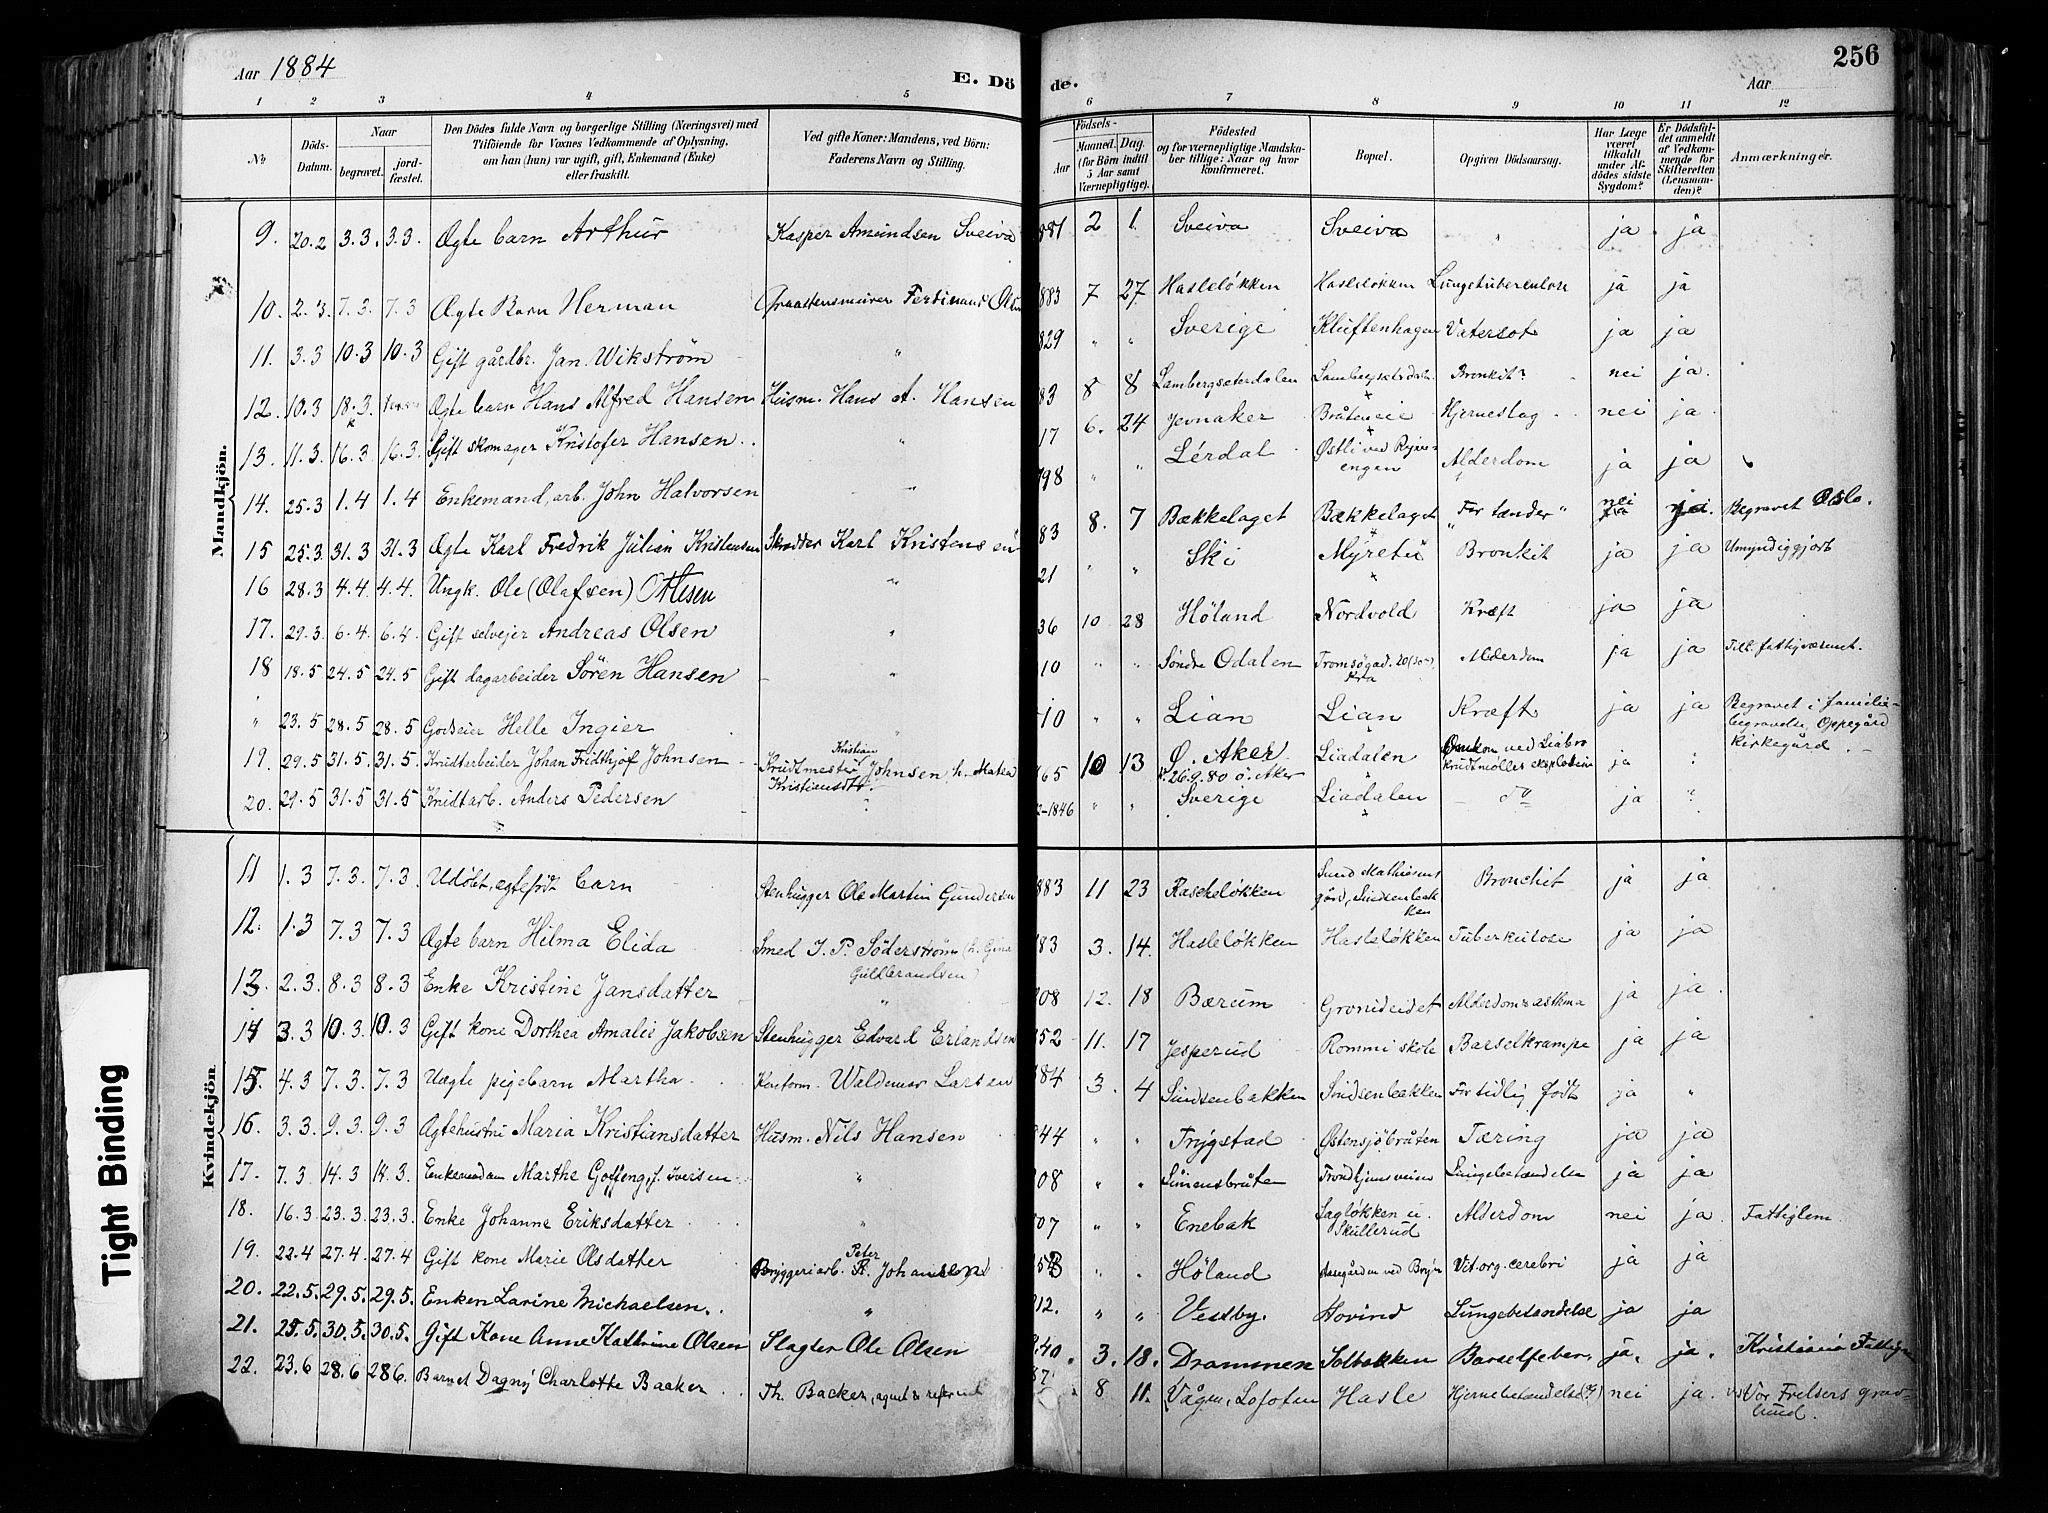 Aar 1884 E. Dö de. Aar 256
1 2 3 4 5 6 7 8 9 10 11 12
No Döds-Datum. Naar begravet. jordfæstet. Den Dödes fulde Navn og borgerlige Stilling (Næringsvei) med Tilföiende for Voxnes Vedkommende af Oplysning, om han (hun) var ugift, gift, Enkemand (Enke) eller fraskilt. Ved gifte Koner: Mandens, ved Börn: Faderens Navn og Stilling. Födsels- Aar Maaned. Dag. (for Börn indtil 5 Aar samt Værnepligtige). Födested og for værnepligtige Mandskaber tillige: Naar og hvor konfirmeret. Bopæl. Opgiven Dödsaarsag. Har Læge været tilkaldt under Afdödes sidste Sygdom? Er Dödsfaldet anmeldt af Vedkommende for Skifteretten (Lensmanden)? Anmærkninger.
Mandkjön.
9. 20.2 3.3. 3.3. Ægte barn Arthur Kasper Amundsen Sveiva 881 2 1. Sveiva Sveiva " ja ja
10. 2.3. 7.3. 7.3 Ægte Barn Herman Ferdinand Olsen 883 7 27 Hasleløkken Hasleløkken Lungetuberculose ja ja
11. 3.3 10.3 10.3 Gift gårdbr. Jan Wikstrøm " 829 " " Sverige Kluftenhagen Vatersot ja ja
12. 10.3 18.3 Ægte barn Hans Alfred Hansen Husm. Hans A. Hansen 83 8 8 Lambergseterdalen Bronkit? nei ja.
13. 11.3. 16.3 16.3. Gift skomager Kristofer Hansen " 17 6. 24 Jevnaker Bråteneie Hjerneslag nei ja.
14. 25.3 1.4 1.4 Enkemand, arb. John Halvorsen " 798 " " Lérdal Østli ved Ryenengen Alderdom ja ja
15 25.3 31.3 31.3 Ægte Karl Fredrik Julian Kristensen Skrædder Karl Kristensen 83 8. 7 Bækkelaget Bækkelaget "For tænder" nei Begravet Oslo.
16 28.3 4.4. 4.4. Ungk. Ole (Olafsen) Ottesen " 21 " " Ski Myretu Bronkit ja ja Umyndiggjort
17. 29.3. 6.4. 6.4 Gift selvejer Andreas Olsen " 36 10 28 Høland Nordvold Kræft ja ja
18 18.5 24.5 24.5 Gift dagarbeider Sören Hansen " 10 " " Søndre Odalen Tromsögad. 20 Kra Alderdom ja ja Tilh. fattigvæsenet.
" 23.5 28.5 28.5 Godseier Helle Ingier " 10 " " Lian Lian Kræft ja ja Begravet i familiebegravelse, Oppegård kirkegård.
19. 29.5 31.5 31.5. Krudtarbeider Johan Fridthjof Johnsen Krudtmester Kristian Johnsen h. Matea Kristiansdtr. 65 10 13 Ø. Aker k. 26.9.80 ö. Aker Liadalen Omkom ved Liabro Krudtmølles explosion ja "
20. 29.5 31.5 31.5 Krudtarb. Anders Pedersen " 1846 " " Sverige Liadalen do ja "
Kvindekjön
11 1.3 7.3. 7.3 Udøbt, ægtefødt barn Stenhugger Ole Martin Gundersen 883 11 23 Rascheløkken Mathiesens gård, Simsenbakken Bronchit ja ja
12. 1.3 7.3 7.3 Ægte barn Hilma Elida Smed J. P. Söderström (h. Gina Gulbrandsen) 83 3. 14. Hasleløkken Hasleløkken Tuberkulose ja ja
13. 2.3. 8.3 8.3 Enke Kristine Jansdatter " 08 12. 18 Bærum Alderdom & asthma ja ja
14 3.3 10.3 10.3 Gift kone Dorthea Amalie Jakobsen Stenhugger Edvard Erlandsen 52 11. 17 Jesperud Rommi skole Barselkrampe ja ja
15 4.3 7.3. 7.3 Uægte pigebarn Martha Waldemar Larsen 84 3. 4 Simsenbakken Simsenbakken For tidlig født ja "
16. 3.3. 9.3. 9.3 Ægtehustru Maria Kristiansdatter Husm. Nils Hansen 44 " " Trygstad Østensjöbråten Tæring ja ja
17. 7.3 14.3 14.3. Enkemadam Marthe Goffeng, f. Iversen " 08 " " Simensbråten Trondhjemsveien Lungebetændelse ja ja
18. 16.3 23.3 23.3. Enke Johanne Eriksdatter " 07 " " Enebak Sagløkken u. Skullerud Alderdom nei ja Fattiglem.
19. 22.4 27.4. 27.4 Gift kone Marie Olsdatter Bryggeriarb. Peter Johansen " " Høland Vit. org. cerebri ja ja
20. 22.5. 29.5. 29.5. Enken Larine Michaelsen. " 12. " " Vestby. Hovind Lungebetændelse ja ja
21. 25.5. 30.5. 30.5. Gift Kone Anne Kathrine Olsen Slagter Ole Olsen 40. 3. 18. Drammen Solbakken Barselfeber. ja. ja. Kristiania
22. 23.6 28.6 28 6. Barnet Dagny Charlotte Backer Th. Backer, agent & referent 8 11. Vågan, Lofoten Hasle Hjernebetændelse(?) nei ja. Vor Frelsers gravlund.
Tight Binding